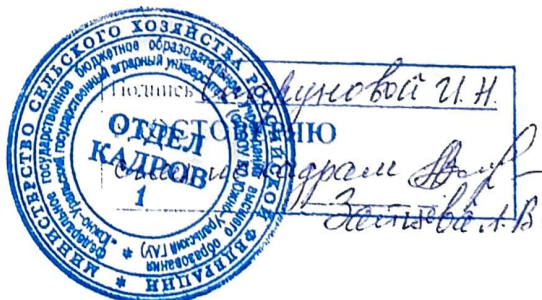 МИНИСТЕРСТВО СЕЛЬСКОГО ХОЗЯЙСТВА РОССИЙСКОЙ ФЕДЕРАЦИИ
федеральное государственное бюджетное образовательное учреждение высшего образования
«Южно-Уральский государственный аграрный университет»
(ФГБОУ ВО Южно-Уральский ГАУ)
ОТДЕЛ
КАДРОВ
1
Подпись И.Н.
УДОСТОВЕРЯЮ
кадрам